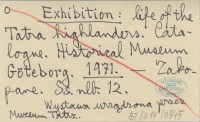 Exhibition: life of the
Tatra highlanders. Cata-
logue. Historical Museum
Göteborg. 1971. Zako-
pane. Ss. nlb. 12.
Wystawa urządzona przez
Muzeum Tatrz.